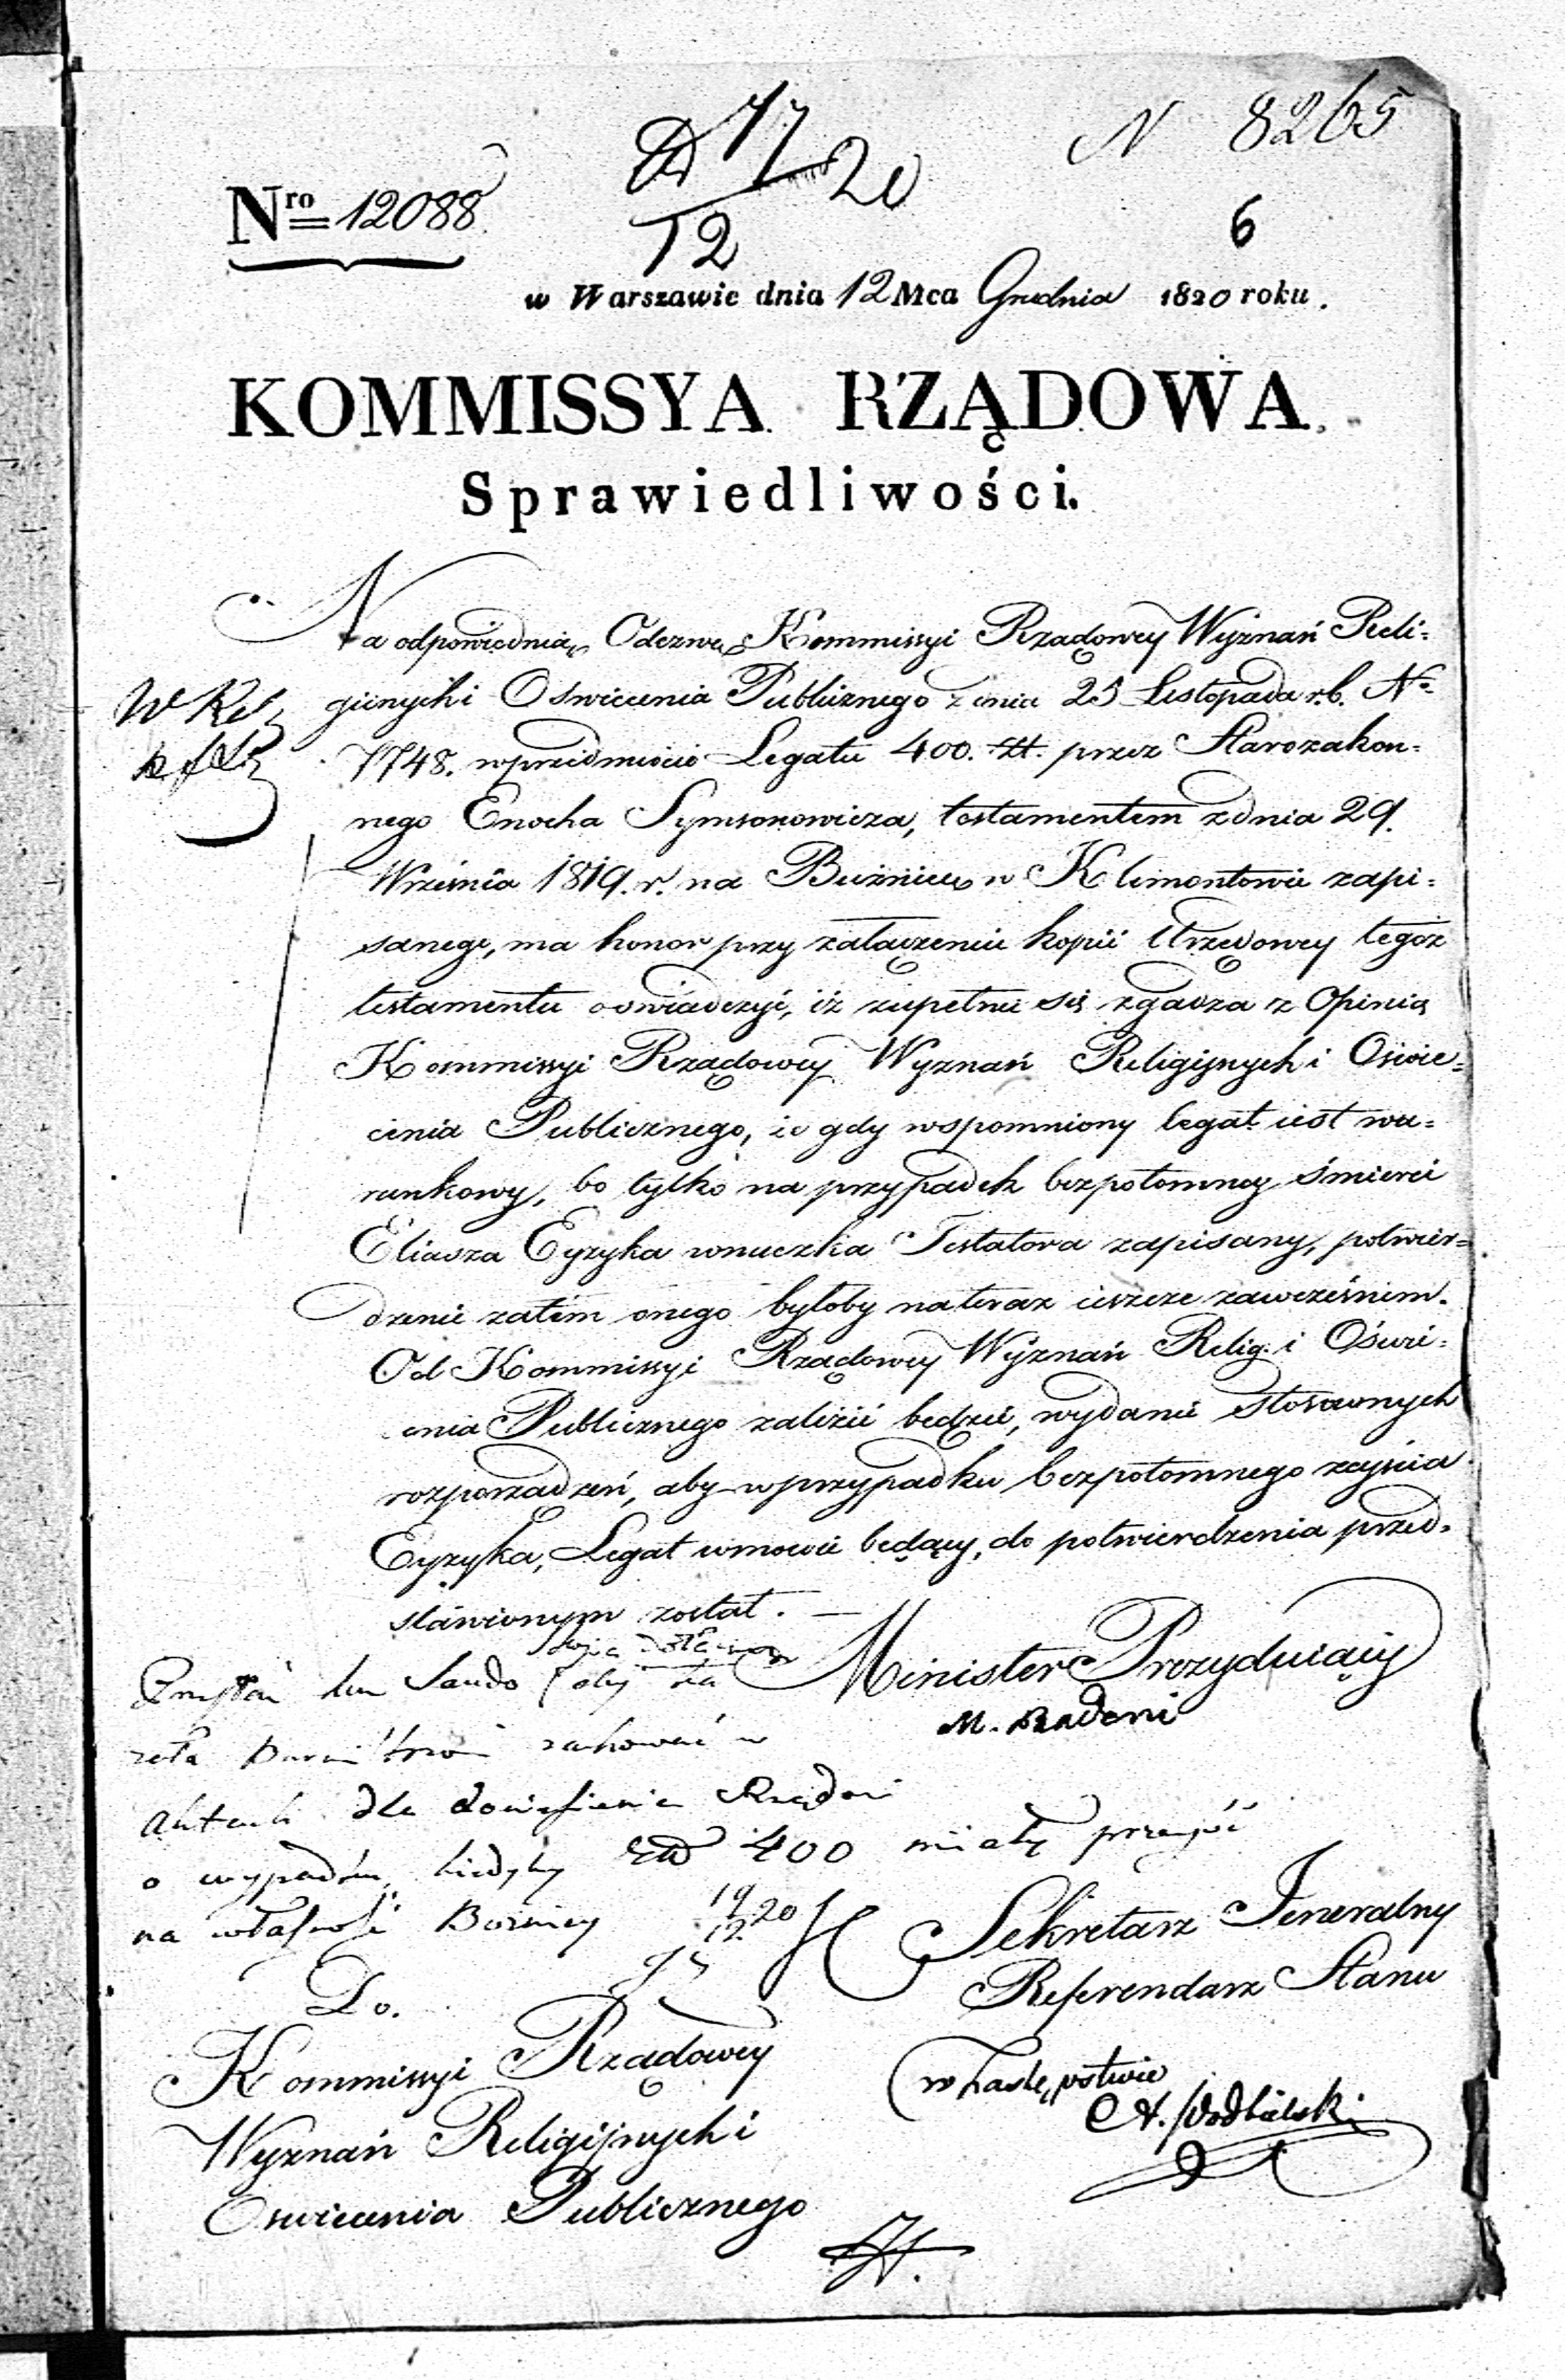 N 8265
17
12 20
Nro 12088
6
w Warszawie dnia 12 Mca Grudnia 1820 roku.
KOMMISSYA RZĄDOWA
Sprawiedliwości.
Na odpowiednią Odezwę Kommissyi Rządowey Wyznań Reli=
giinych i Oświecenia Publicznego z dnia 25 Listopada r.b. No
7748. w przedmiocie Legatu 400. zł. przez Starozakon=
nego Enocha Symsonowicza, testamentem z dnia 29.
Września 1819. r. na Bużnicę w Klimontowie zapi=
sanego, ma honor przy załączeniu kopii Urzędowey tegoż
testamentu oświadczyć, iż zupełnie się zgadza z Opinią
Kommissyi Rządowey Wyznań Religijnych i Oświe=
cenia Publicznego, że gdy wspomniony legat iest wa=
runkowy, bo tylko na przypadek bezpotomney śmierci
Eliasza Eyzyka wnuczka Testatora zapisany, potwier=
dzenie zatém onego byłoby na teraz ieszcze zawcześniem.
Od Kommissyi Rządowey Wyznań Relig. i Oświe=
cenia Publicznego zależeć będzie, wydanie stosownych
rozporządzeń, aby w przypadku bezpotomnego zeyścia
Eyzyka, Legat w mowie będący, do potwierdzenia przed=
stawionym został. —
Minister Prezyduiący
M. Badeni
zachować w
Aktach dla doniesienia Rządowi
o wypadku, kiedyby 400 miały przejść
na własność Bożnicy 19/12 20
Sekretarz Jeneralny
Referendarz Stanu
w Zastępstwie
Do.
Kommissyi Rządowey
Wyznań Religijnych i
Oświecenia Publicznego